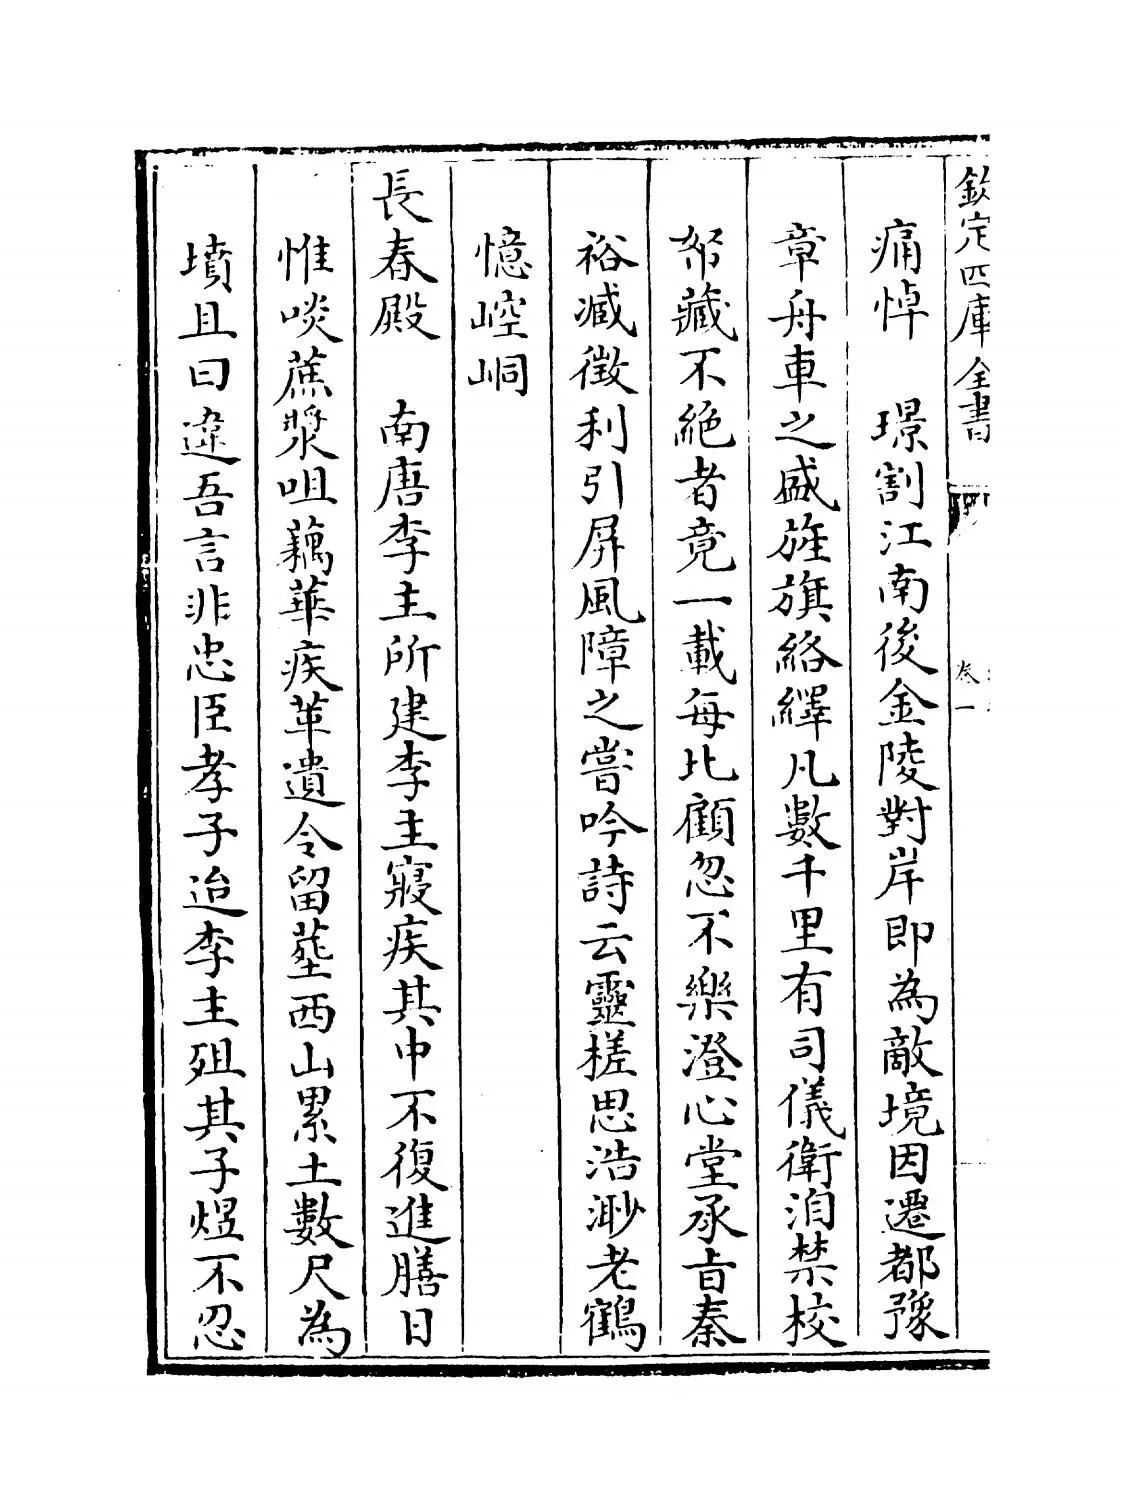 欽定四庫全書
卷一
痛悼　璟割江南後金陵對岸即為敵境因遷都豫
章舟車之盛旌旗絡繹凡數千里有司儀衛洎禁校
帑藏不絕者竟一載每北顧忽不樂澄心堂承旨秦
裕減徴利引屏風障之嘗吟詩云靈槎思浩渺老鶴
憶崆峒
長春殿　南唐李主所建李主寢疾其中不復進膳日
惟啖蔗漿咀藕華疾革遺令留塟西山累土數尺為
墳且曰違吾言非忠臣孝子迨李主殂其子煜不忍